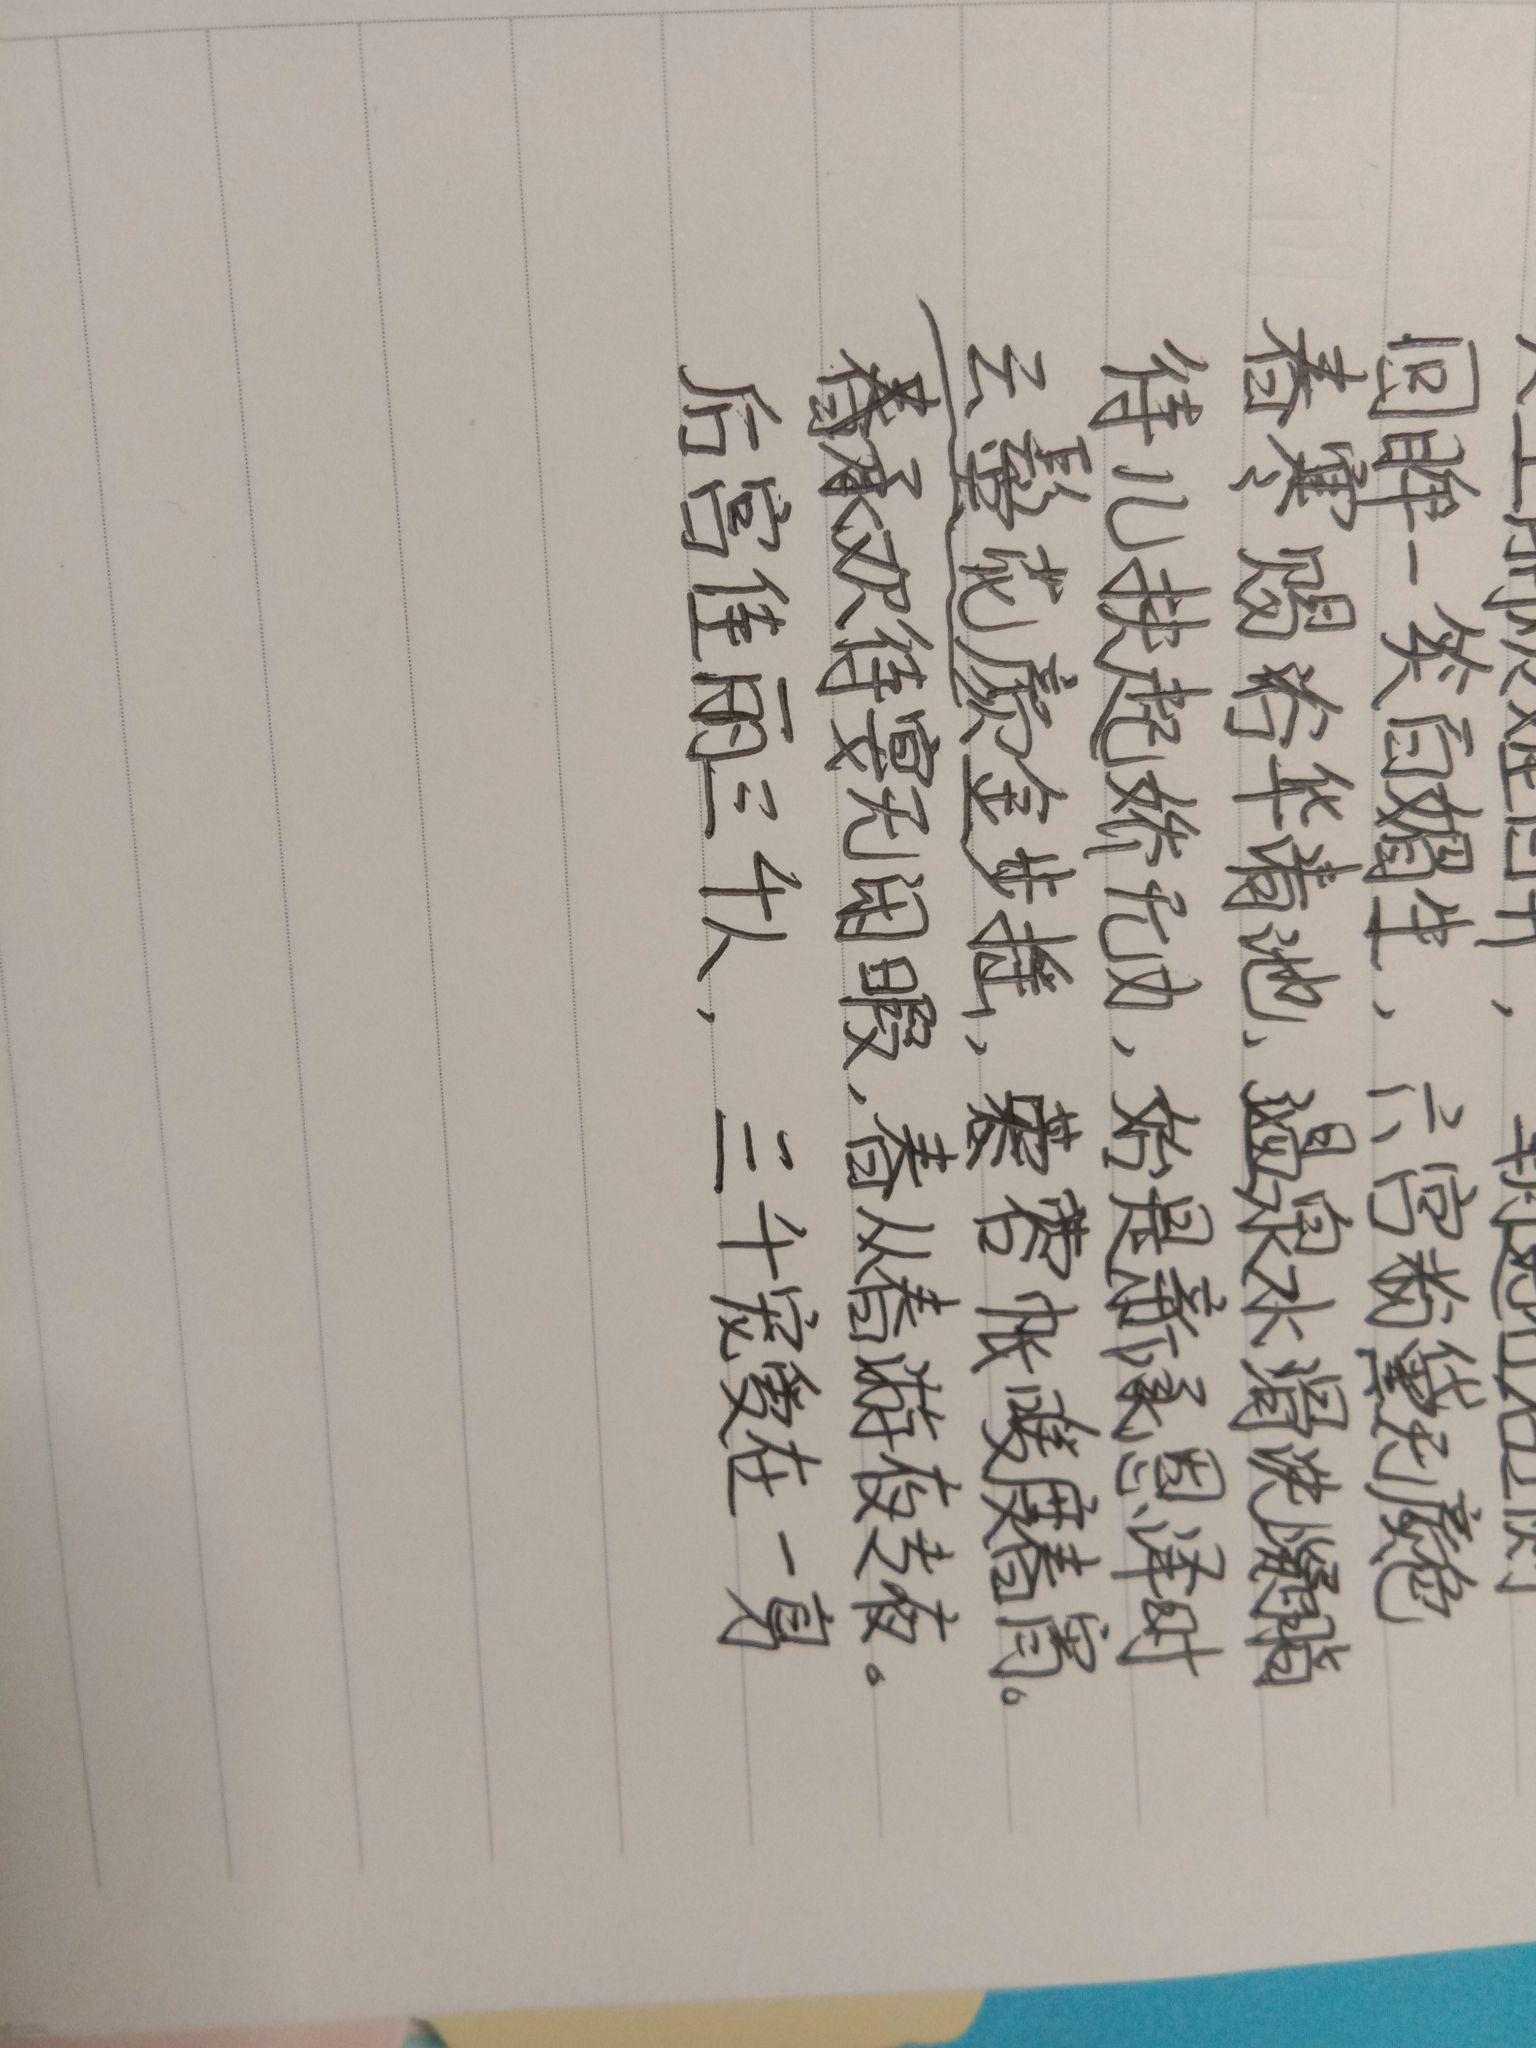 回眸一笑百媚生，六宫粉黛无颜色
春寒赐浴华清池，温泉水滑洗凝脂
侍儿扶起娇无力，始是新承恩泽时
云鬓花颜金步摇，芙蓉帐暖度春宵。
承欢侍宴无闲暇，春从春游夜专夜。
后宫佳丽三千人，三千宠爱在一身